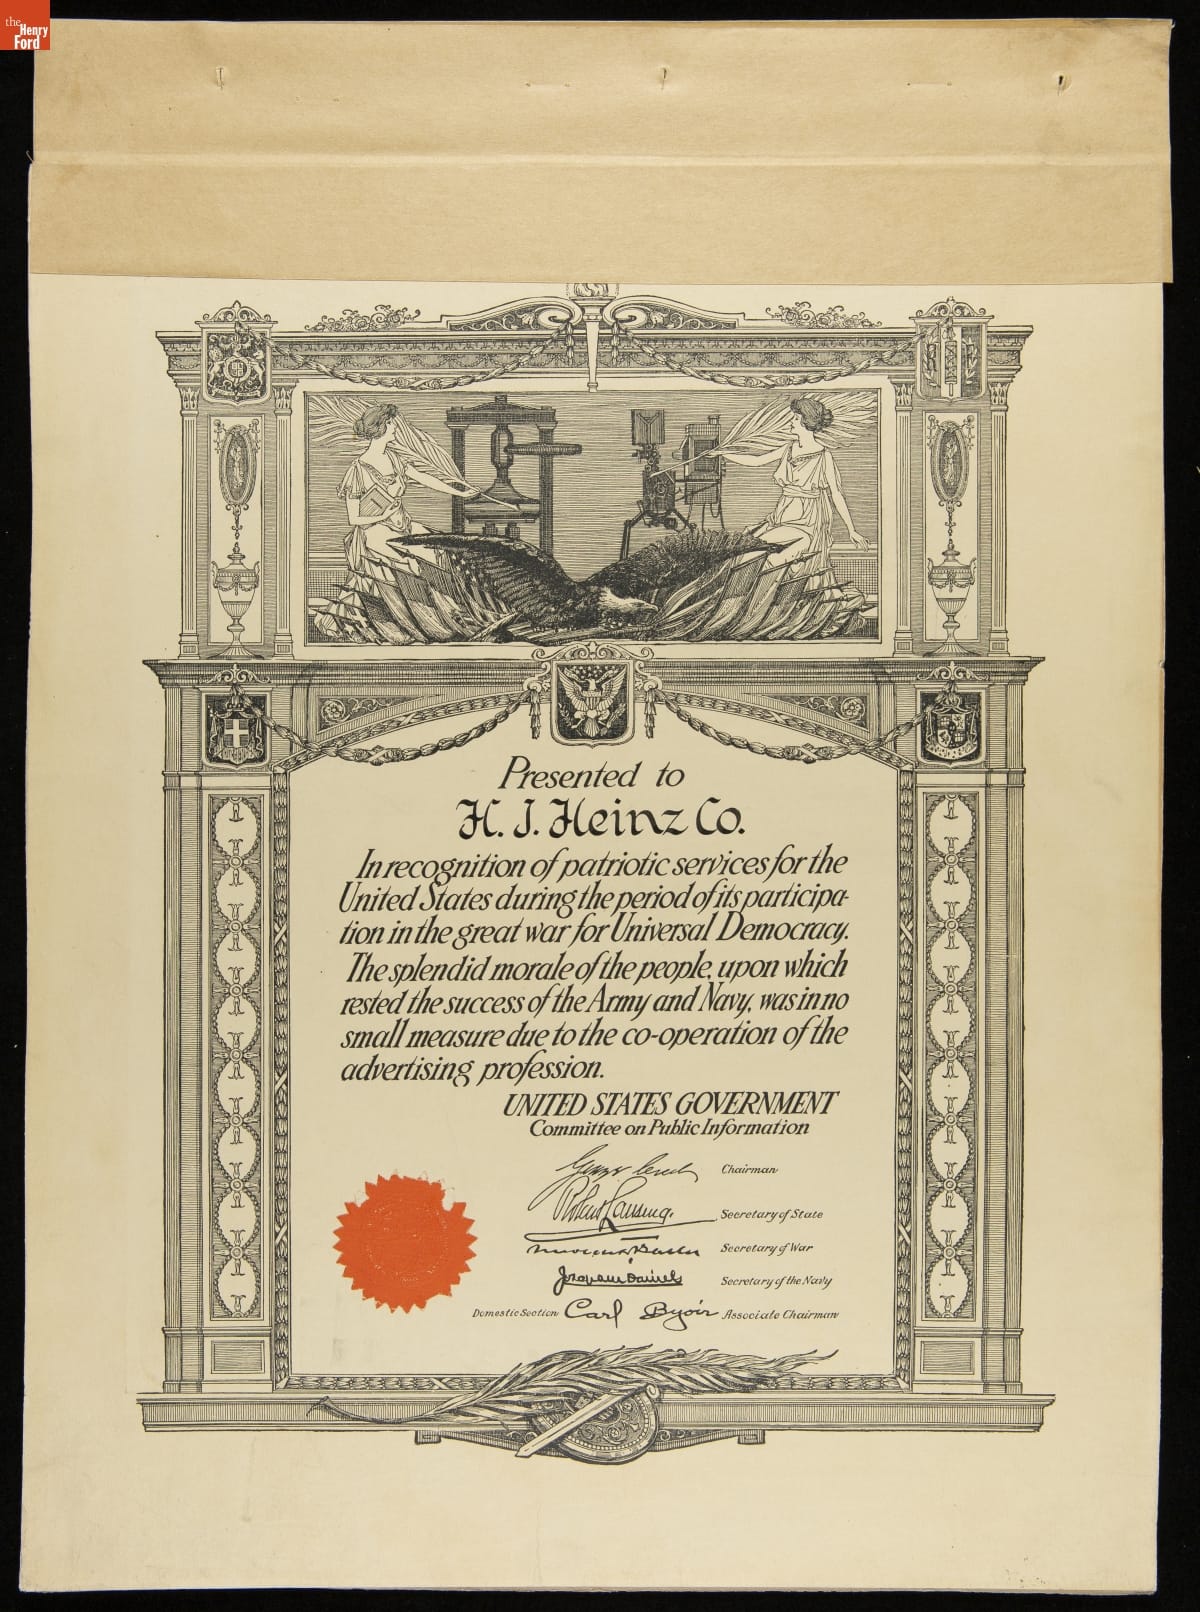 the
Henry
Ford
Presented to
H. J. Heinz Co.
In recognition of patriotic services for the
United States during the period of its participa-
tion in the great war for Universal Democracy.
The splendid morale of the people, upon which
rested the success of the Army and Navy, was in no
small measure due to the co-operation of the
advertising profession.
UNITED STATES GOVERNMENT
Committee on Public Information
George Creel Chairman
Robert Lansing. Secretary of State
Newton D. Baker Secretary of War
Josephus Daniels Secretary of the Navy
Domestic Section Carl Byoir Associate Chairman